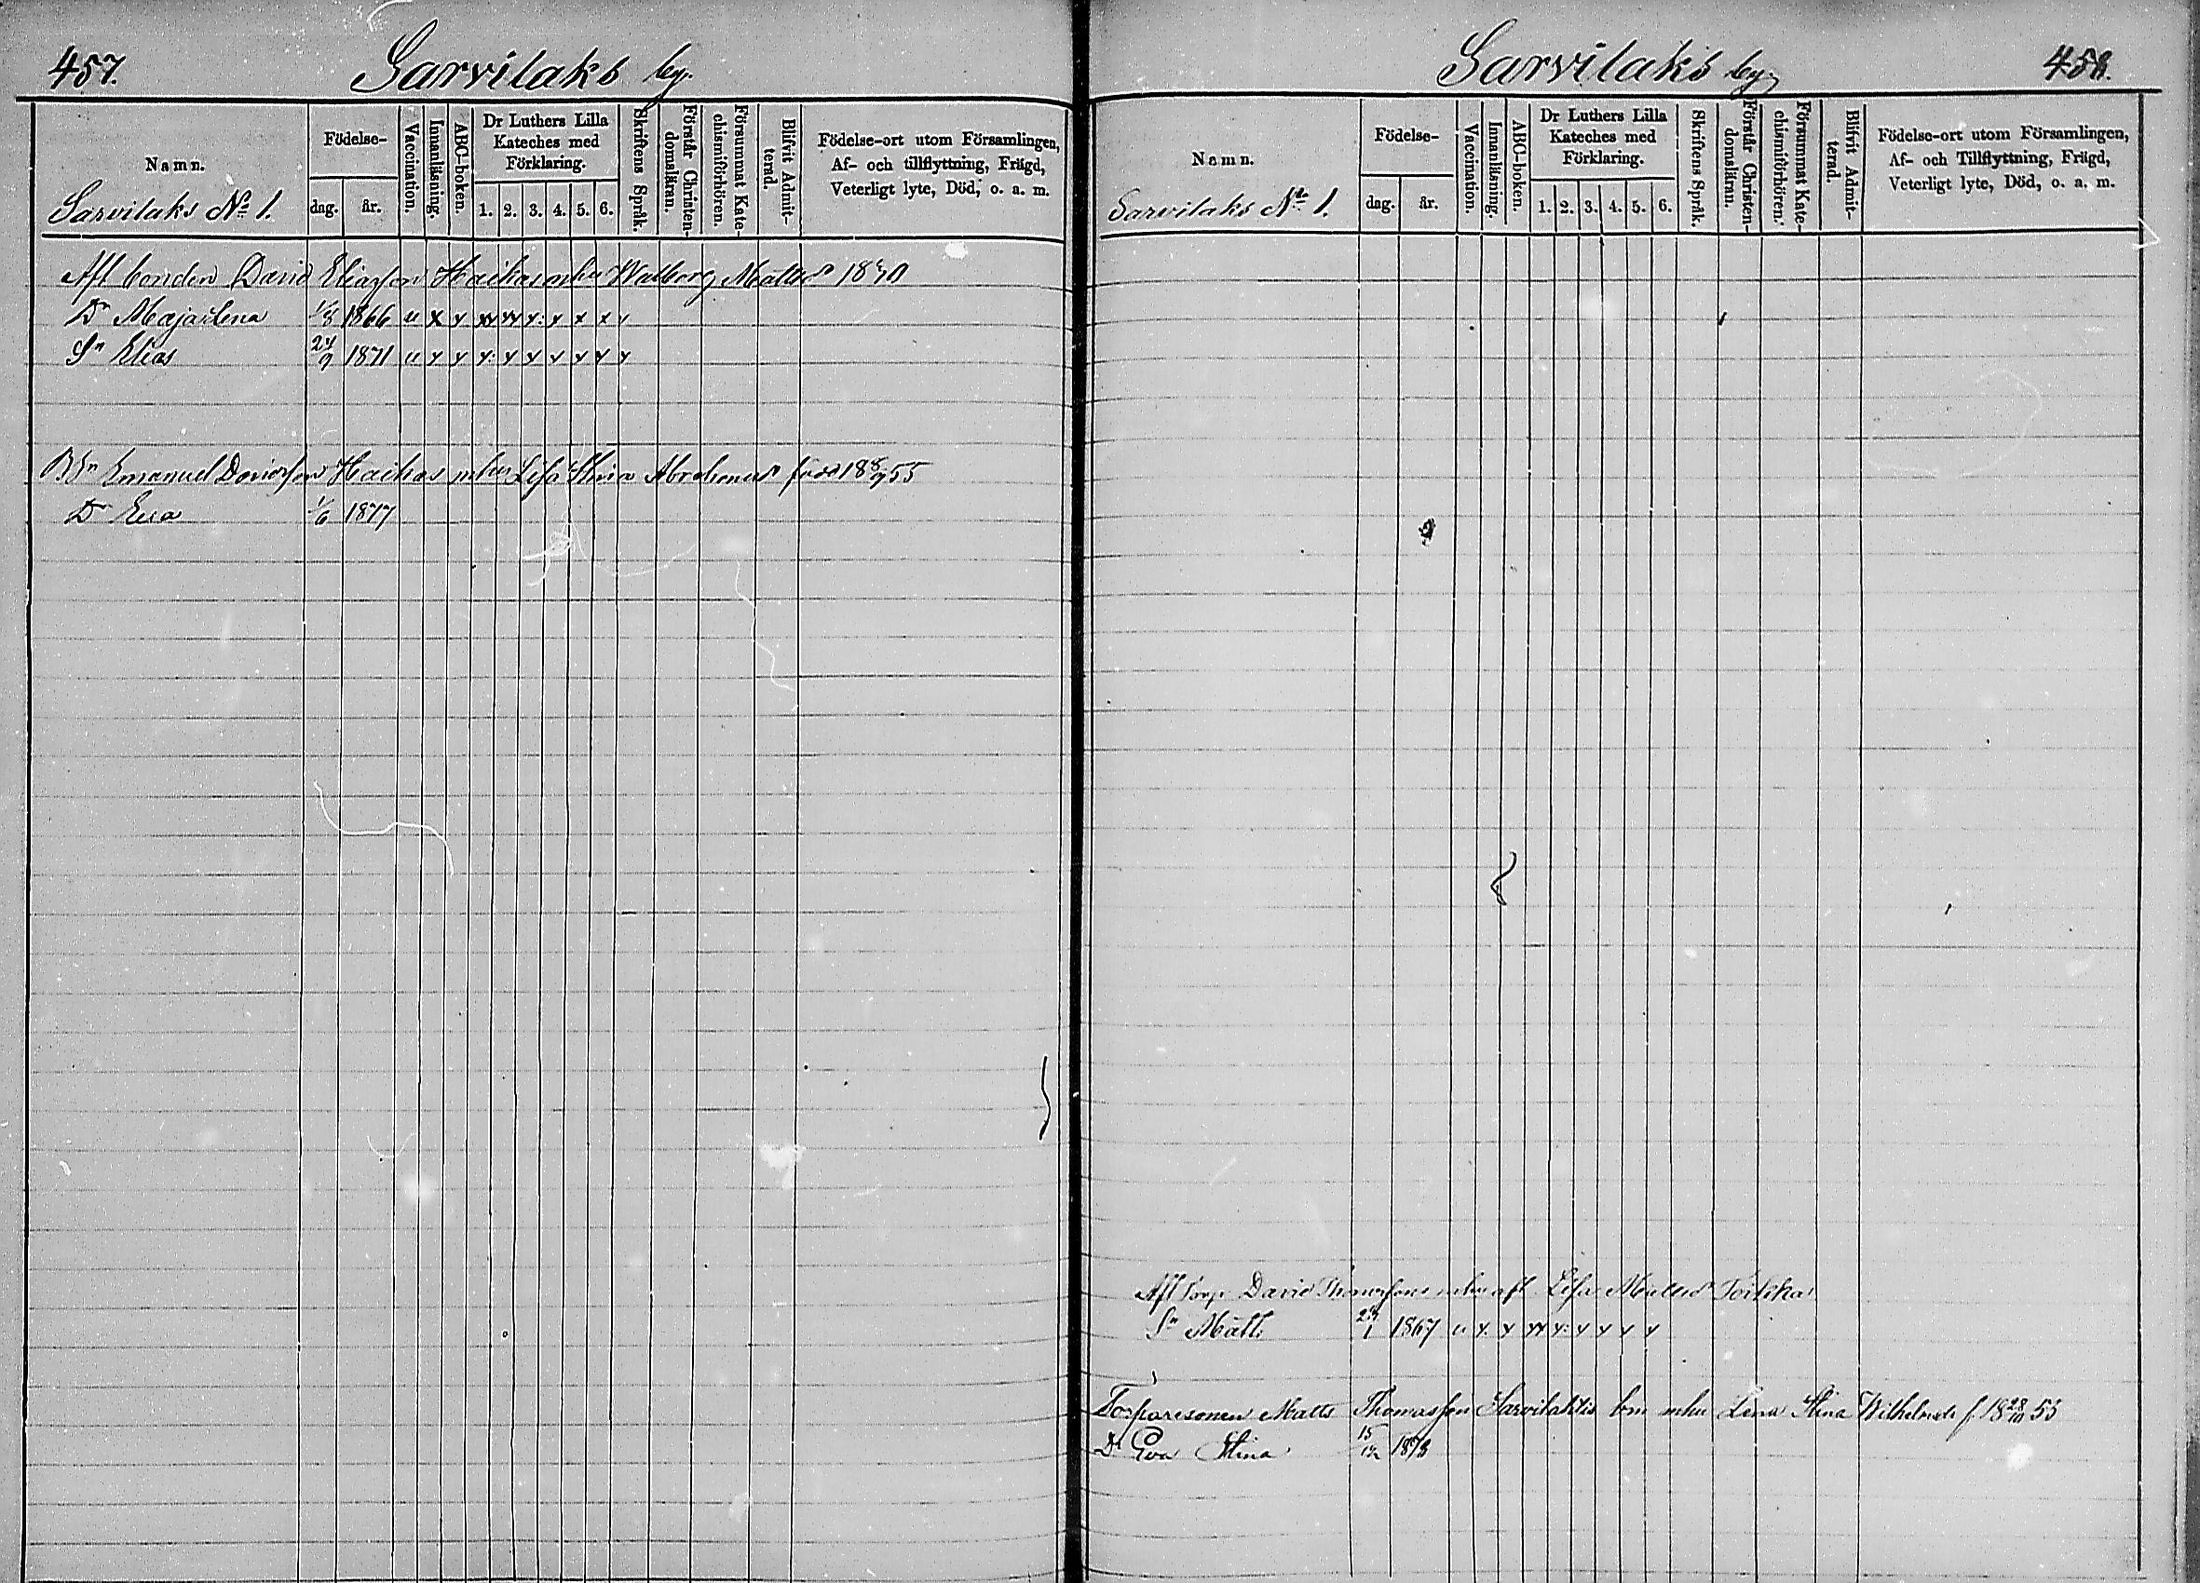 457.
Sarvilaks by.
Namn.
Födelse-
dag.
år.
Vaccination.
Innanläsning.
ABC-boken.
Dr Luthers Lilla
Kateches med
Förklaring.
1. 2. 3. 4. 5. 6.
Skriftens Språk.
Förstår Christen-
domsläran.
Försummat Kate-
chismiförhören.
Blifvit Admit-
terad.
Födelse-ort utom Församlingen,
Af- och tillflyttning, Frägd,
Veterligt lyte, Död, o. a. m.
Sarvilaks No 1.
Afl bonden David Eliasson Haikas enka Walborg Mattsd
Dr Maja Lena 1/8 1866 u x y xy yy y: y x x y
Sn Elias 24/9 1871 u y y y: y y y y y y
Bsn Emanuel Davidsson Haikas mhu Lisa Stina Abrahamsd född 18 8/9 55
Dr Eva 1/6 1877
Sarvilaks by
458.
Namn.
Födelse-
dag.
år.
Vaccination.
Innanläsning.
ABC-boken.
Dr Luthers Lilla
Kateches med
Förklaring.
1. 2. 3. 4. 5. 6.
Skriftens Språk.
Förstår Christen-
domsläran.
Försummat Kate-
chismiförhören.
Blifvit Admit-
terad.
Födelse-ort utom Församlingen,
Af- och Tillflyttning, Frägd,
Veterligt lyte, Död, o. a. m.
Sarvilaks No 1.
Afl torp David Thomassons mhu afl. Lisa Mattsd
Sn Matts 1867 u y: y yy y: y y y y
Torparesonen Matts Thomasson Sarvilahtis bm mhu Lena Stina Wilhelmsd f. 18 28/10 55
Dr Eva Stina 15/12 1878